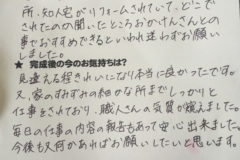 所、知人宅がリフォームされていて、どこで
されたのか聞いたところおかけんさんとの
事でおすすめできるといわれ迷わずお願い
しました。
★ 完成後の今のお気持ちは?
見違える程きれいになり本当に良かったです。
又、家のすみずみの細かな所までしっかりと
仕事をされており、職人さんの気質が窺えました。
毎日の仕事の内容の報告もあって安心出来ました。
今後も又何かあればお願いしたいと思います。